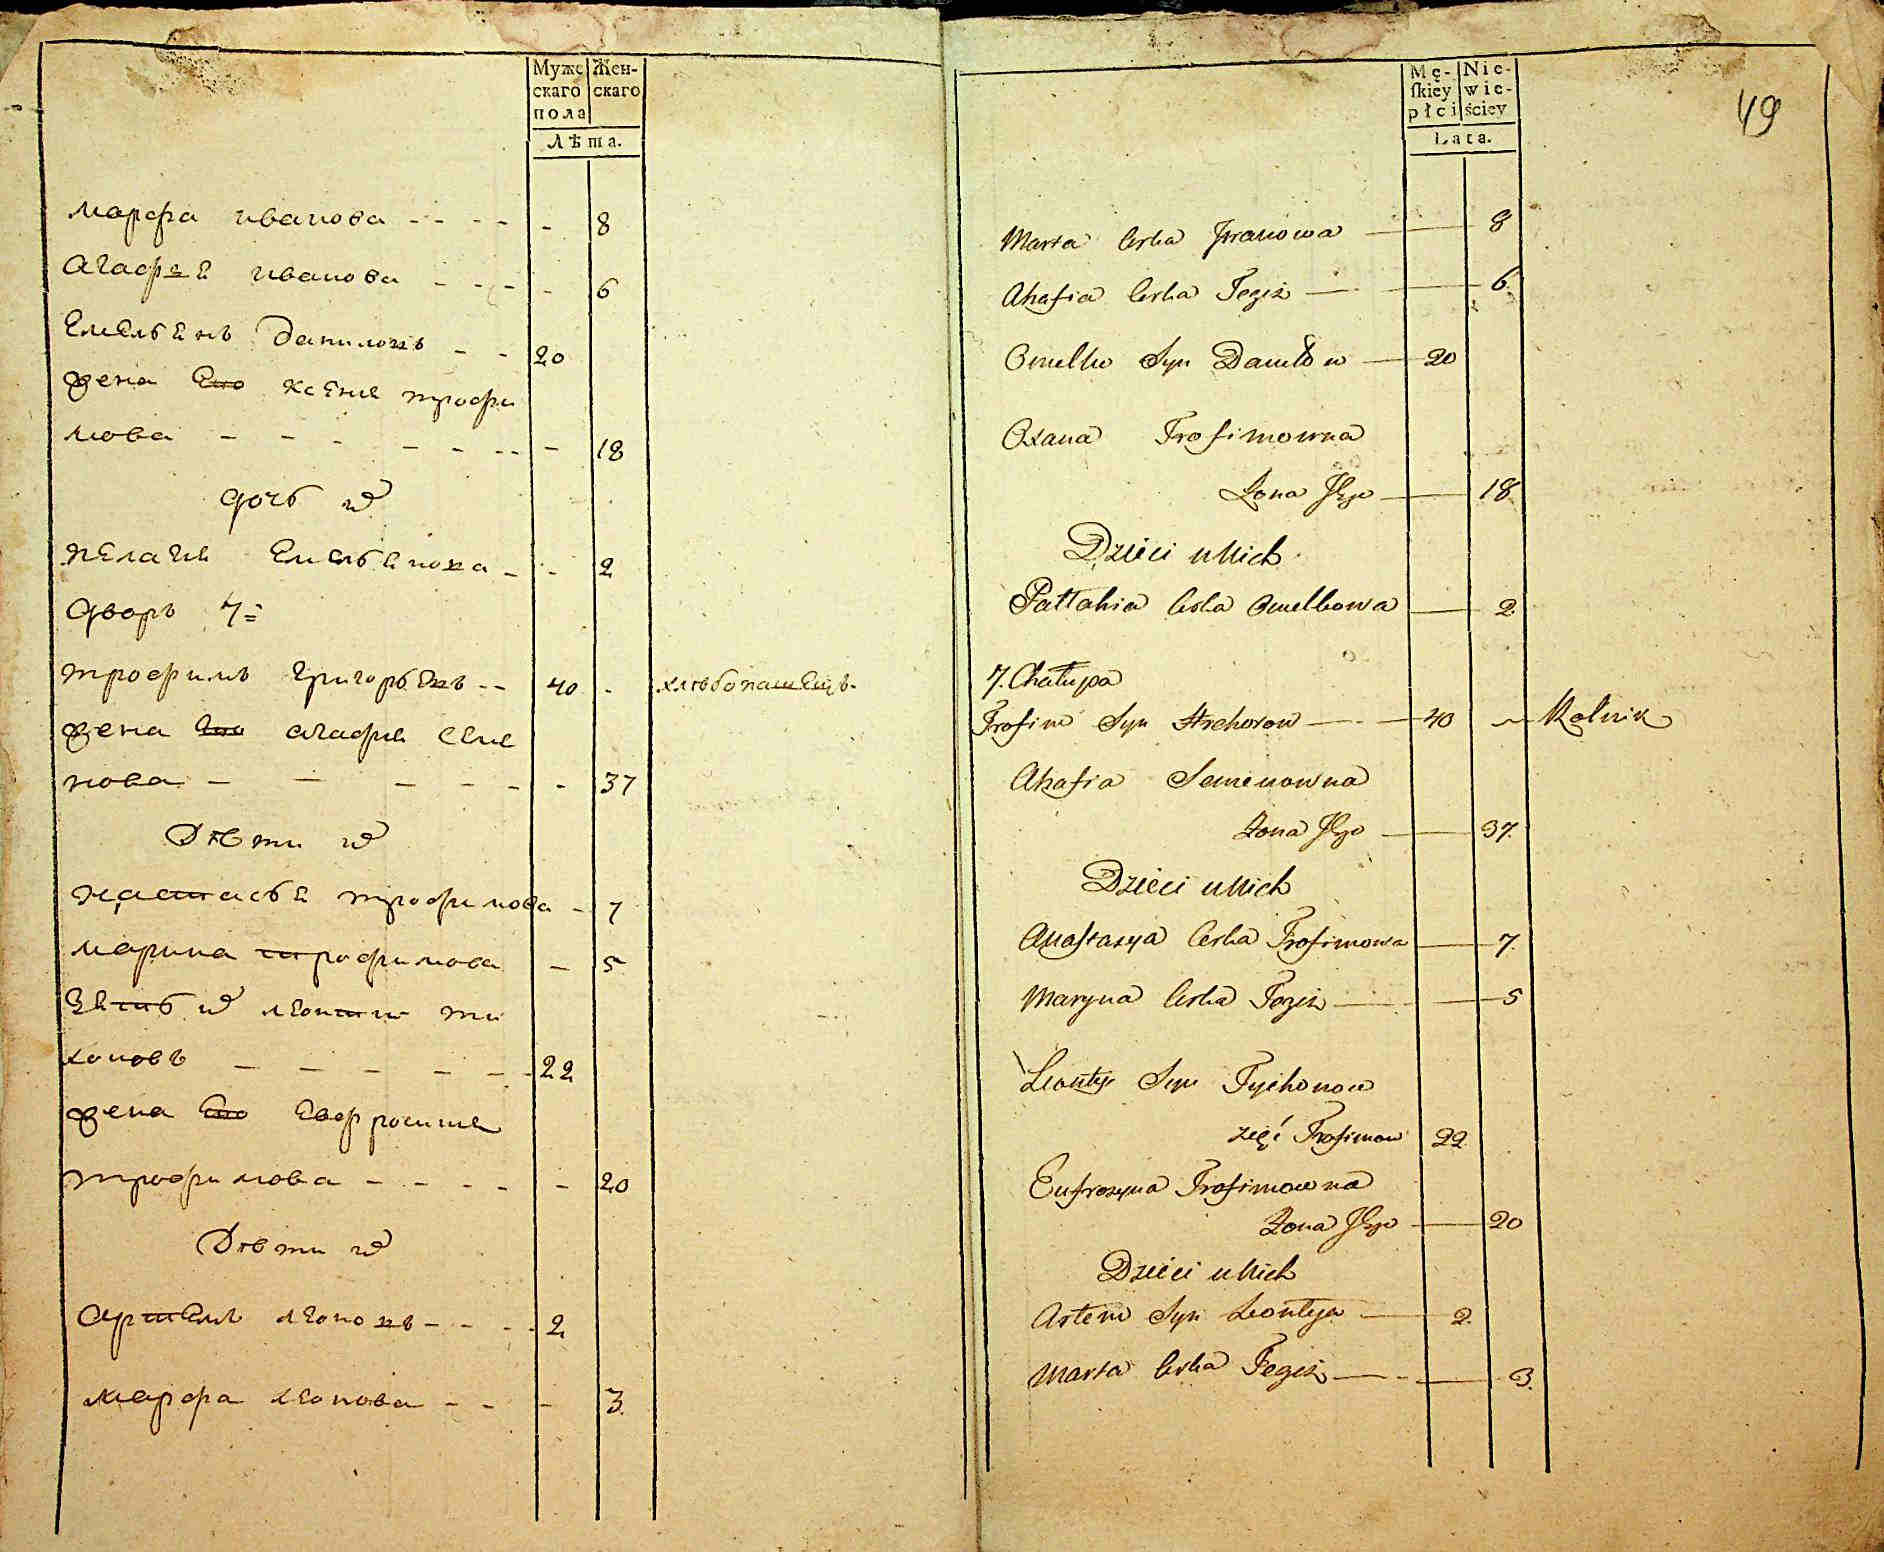 Муже
скаго
пола
Жен-
скаго
Лѣта.
марфа иванова - - - - - 8
агафея иванова - - - - 6
Емельянъ даниловъ - - 20
жена Его ксения трофи
мова - - - - - - - 18
дочь их
пелагия Емельянова - - 2
дворъ 7=
трофимъ григорьевъ - - 40 - хлѣбопашецъ.
жена Его агафия семе
нова - - - - - - 37
Дѣти их
настасья трофимова - 7
марина трофимова - 5
зять их леонти ти
хоновъ - - - - - - 22
жена Его Евфросиния
трофимова - - - - - 20
Дѣти их
артемъ леоновъ - - - - 2
марфа леонова - - - 3.
Mę-
ſkiey
płci
Nie-
wie-
ściey
Lata.
49
Marta Corka Jwanowa — 8
Ahafia Corka Tegiż — 6.
Omelko Syn Daniłow — 20
Oxana Trofimowna
Żona Jego — 18.
Dzieci u Nich
Pałłahia Corka Omelkowa — 2.
7. Chałupa
Trofim Syn Hrehorow — 40 ~ Rolnik
Ahafia Semenowna
Żona Jego — 37.
Dzieci u Nich
Anastazya Corka Trofimowa — 7.
Maryna Corka Tegiż — 5
Leonty Syn Tychonow
zięć Trofimow 22.
Eufrozyna Trofimowna
Żona Jego — 20
Dzieci u Nich
Artem Syn Leontya — 2.
Marta Corka Tegiż — 3.